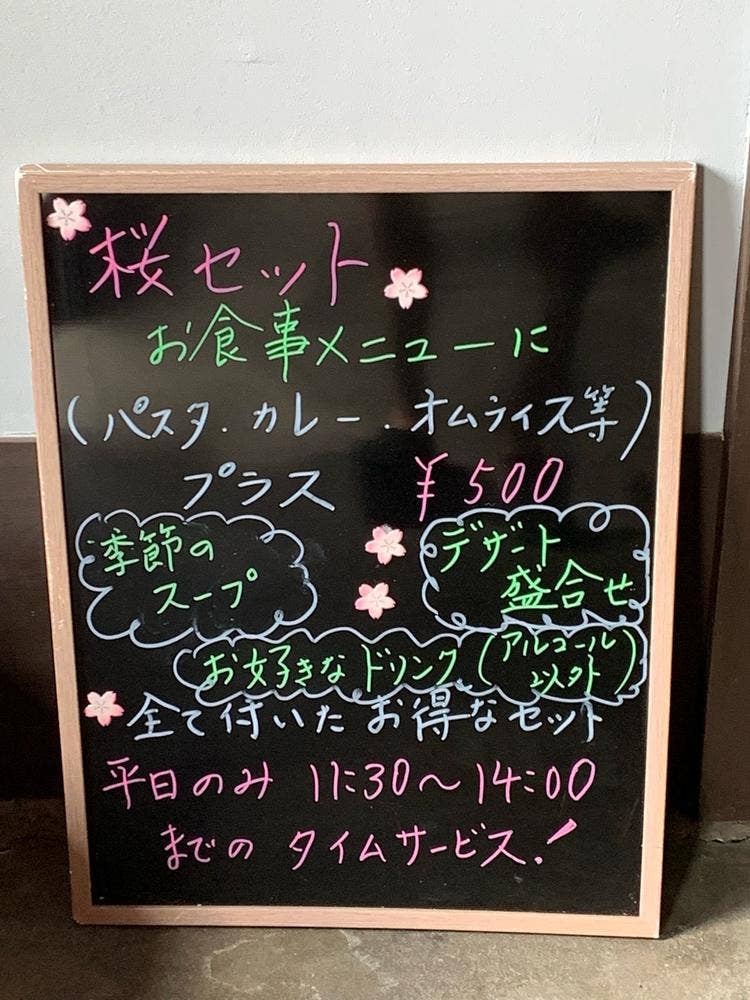 桜セット
お食事メニューに
(パスタ.カレー.オムライス等)
プラス ¥500
季節の
スープ
デザート
盛合せ
お好きなドリンク(アルコール以外)
全て付いたお得なセット
平日のみ 11:30〜14:00
までの タイムサービス!